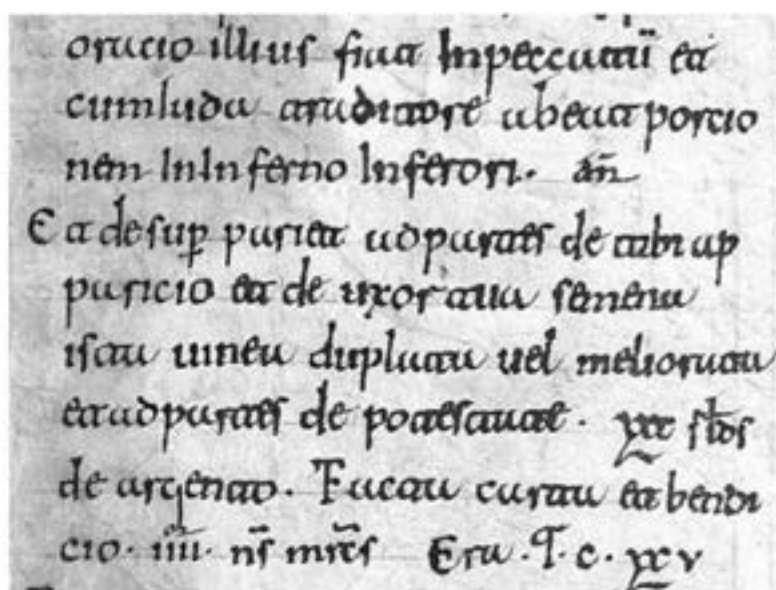 oracio illius fiat In peccatū et
cum Iuda traditore abeat porcio
nem In Inferno Inferori. añ
Et desup pariet ad partes de tibi ap
paricio et de uxor tua semena
ista uinea duplata uel meliorata
et ad partes de potestate. slds
de argento. Facta carta et bendi
cio. iiii. ns mrcs Era. T. c. xxv